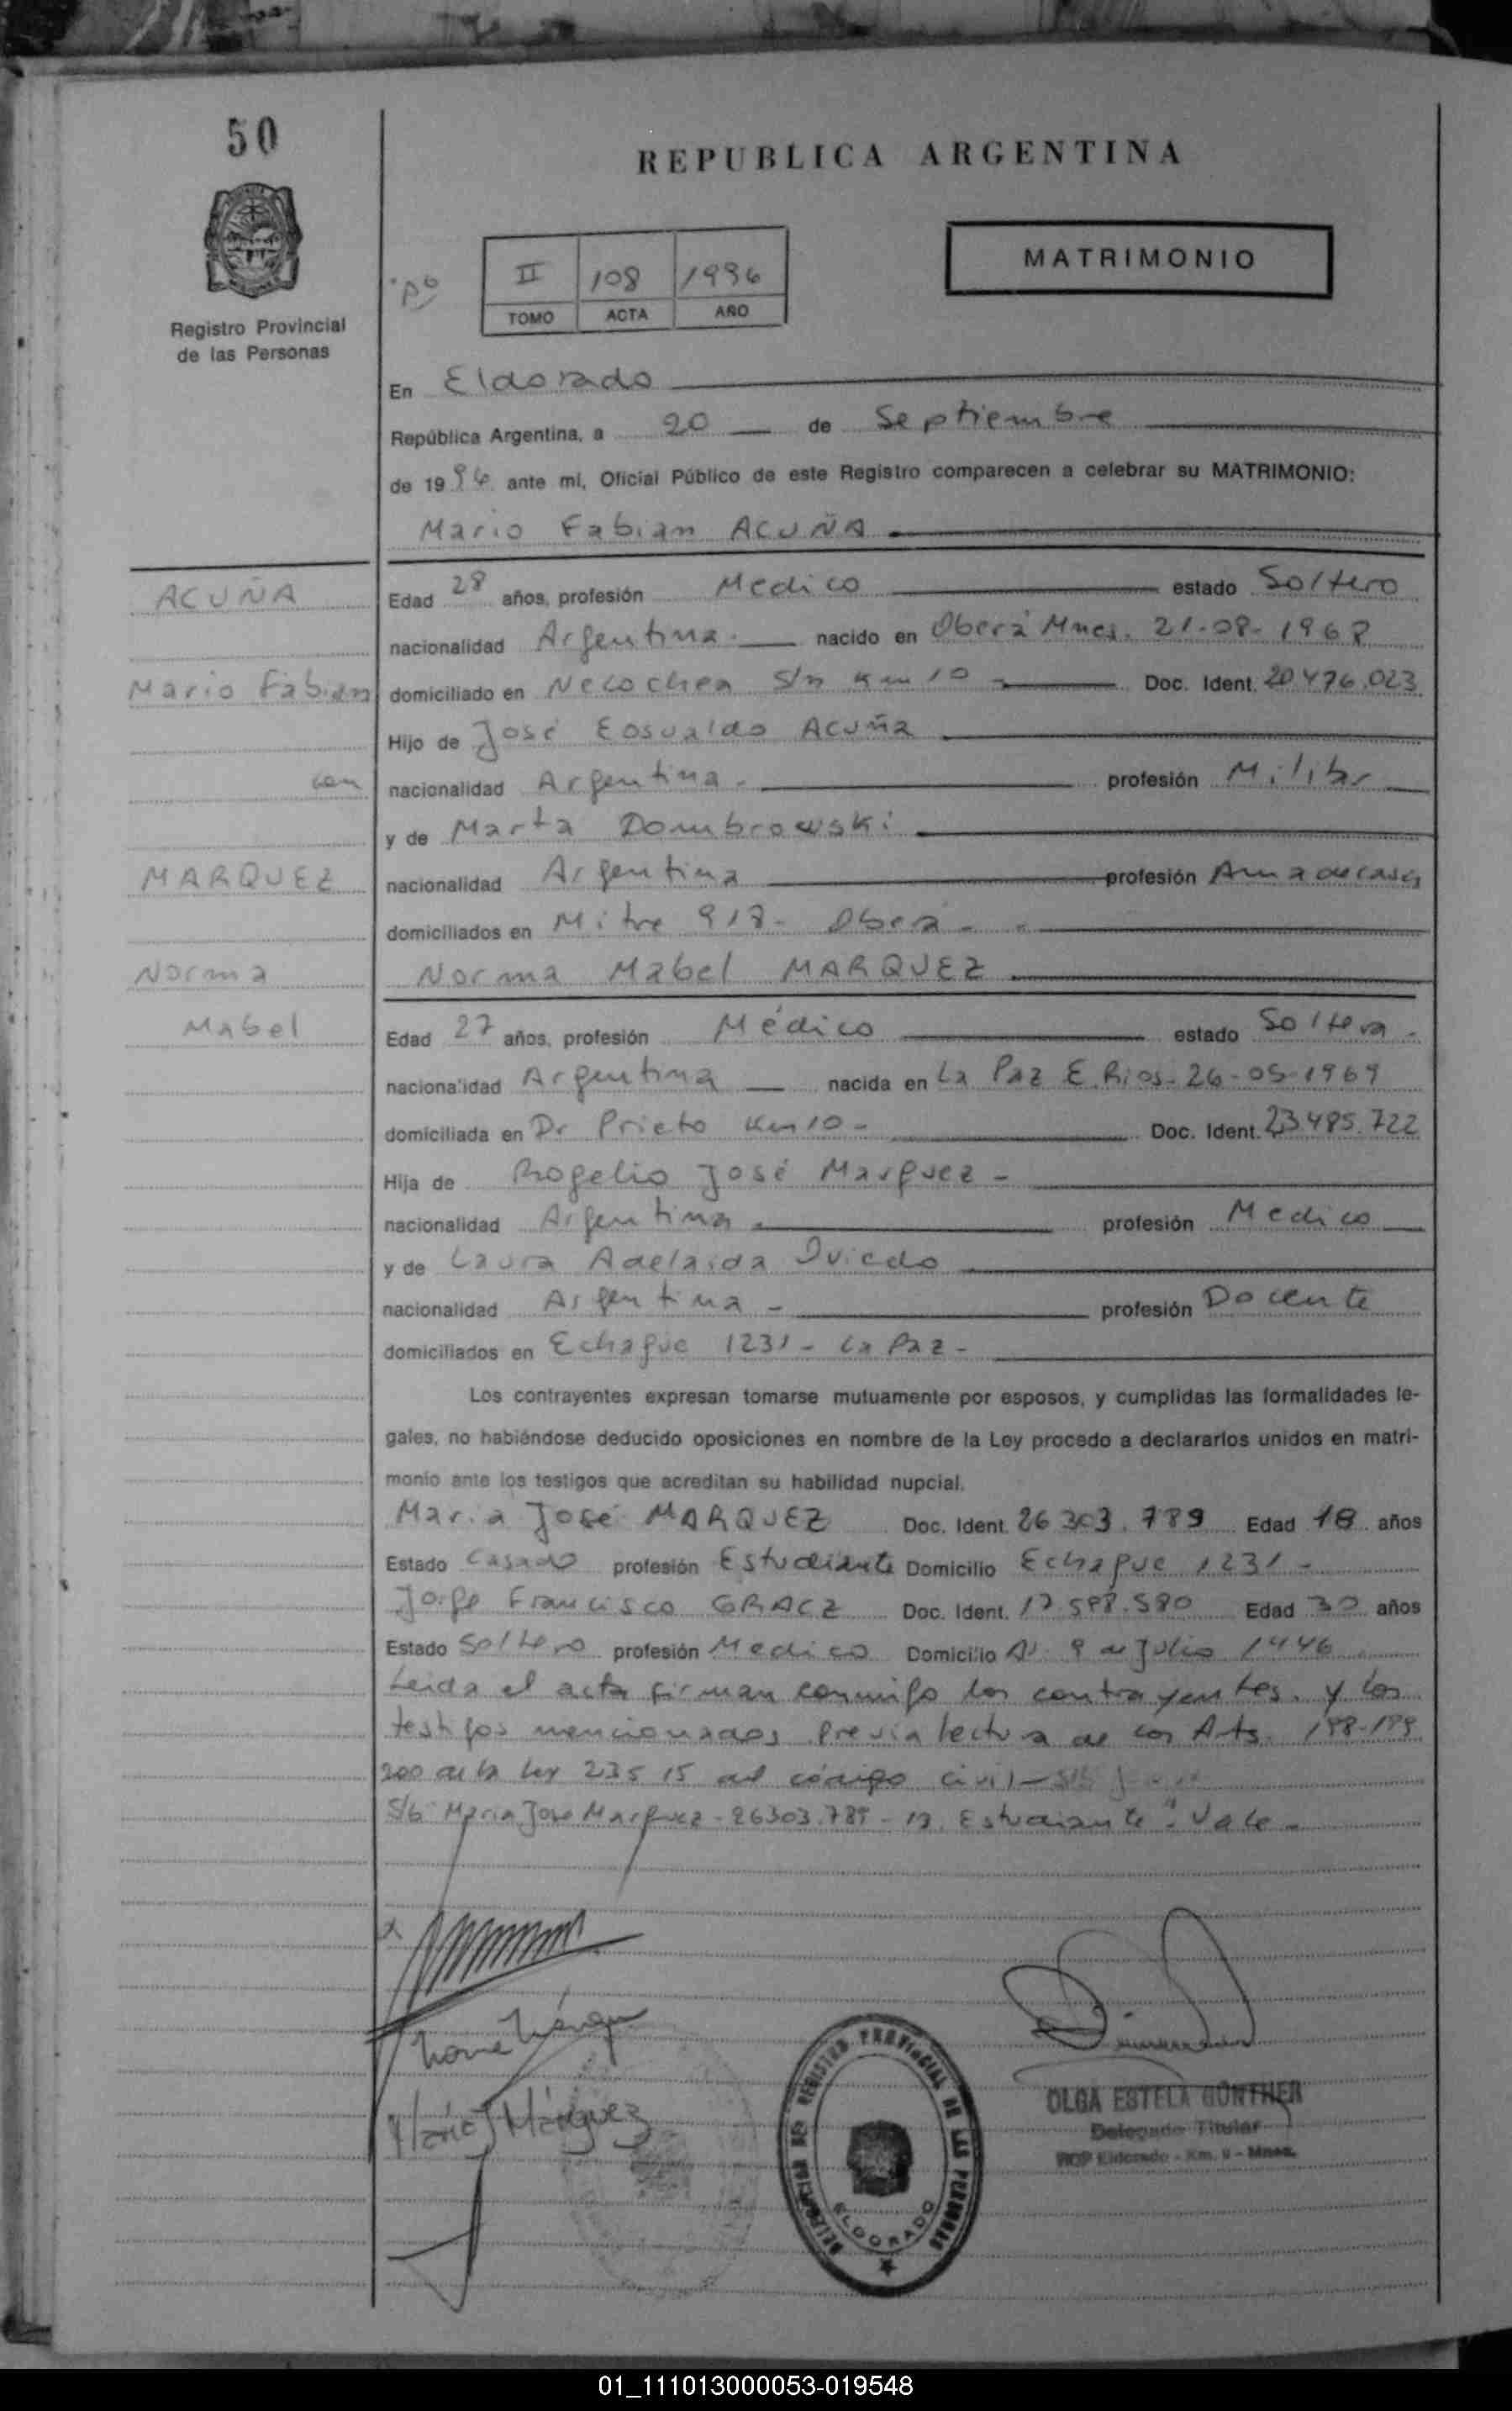 50
REPUBLICA ARGENTINA
MATRIMONIO
Registro Provincial
de las Personas
II 108 1996
TOMO ACTA AÑO
En Eldorado
República Argentina, a 20 de Septiembre
de 1996 ante mí, Oficial Público de este Registro comparecen a celebrar su MATRIMONIO:
Mario Fabian ACUÑA
ACUÑA
Edad 28 años, profesión Medico estado Soltero
nacionalidad Argentina. nacido en Oberá Mnes. 21-08-1968
Mario Fabian
domiciliado en Necochea S/n Km 10 - Doc. Ident. 20.476.023
Hijo de José Eosualdo Acuña
con
nacionalidad Argentina - profesión Militar
y de Marta Dombrowski
MARQUEZ
nacionalidad Argentina profesión Ama de casa
domiciliados en Mitre 918 - Obera -
Norma
Norma Mabel MARQUEZ
Mabel
Edad 27 años, profesión Médico estado Soltera -
nacionalidad Argentina nacida en La Paz E. Rios - 26-05-1969
domiciliada en Dr Prieto Km 10 - Doc. Ident. 23.485.722
Hija de Rogelio José Marquez -
nacionalidad Argentina - profesión Medico
y de Laura Adelaida Oviedo
nacionalidad Argentina - profesión Docente
domiciliados en Echague 1231 - La Paz -
Los contrayentes expresan tomarse mutuamente por esposos, y cumplidas las formalidades le-
gales, no habiéndose deducido oposiciones en nombre de la Ley procedo a declararlos unidos en matri-
monio ante los testigos que acreditan su habilidad nupcial.
Maria José MARQUEZ Doc. Ident. 26 303.789 Edad 18 años
Estado Casado profesión Estudiante Domicilio Echague 1231 -
Jorge Francisco GRACZ Doc. Ident. 17.598.580 Edad 30 años
Estado Soltero profesión Medico Domicilio Av. 9 de Julio 1446
Leida el acta firman conmigo los contrayentes. y los
testigos mencionados previa lectura de los Arts. 198-199
200 de la ley 23515 del código civil -
S/b "Maria José Marquez - 26303.789 - 18. Estudiante". Vale -
María J Márquez
DELEGACION DEL REGISTRO PROVINCIAL DE LAS PERSONAS
ELDORADO
OLGA ESTELA GÜNTHER
Delegado Titular
RDP Eldorado - Km. 9 - Mnes.
01_111013000053-019548